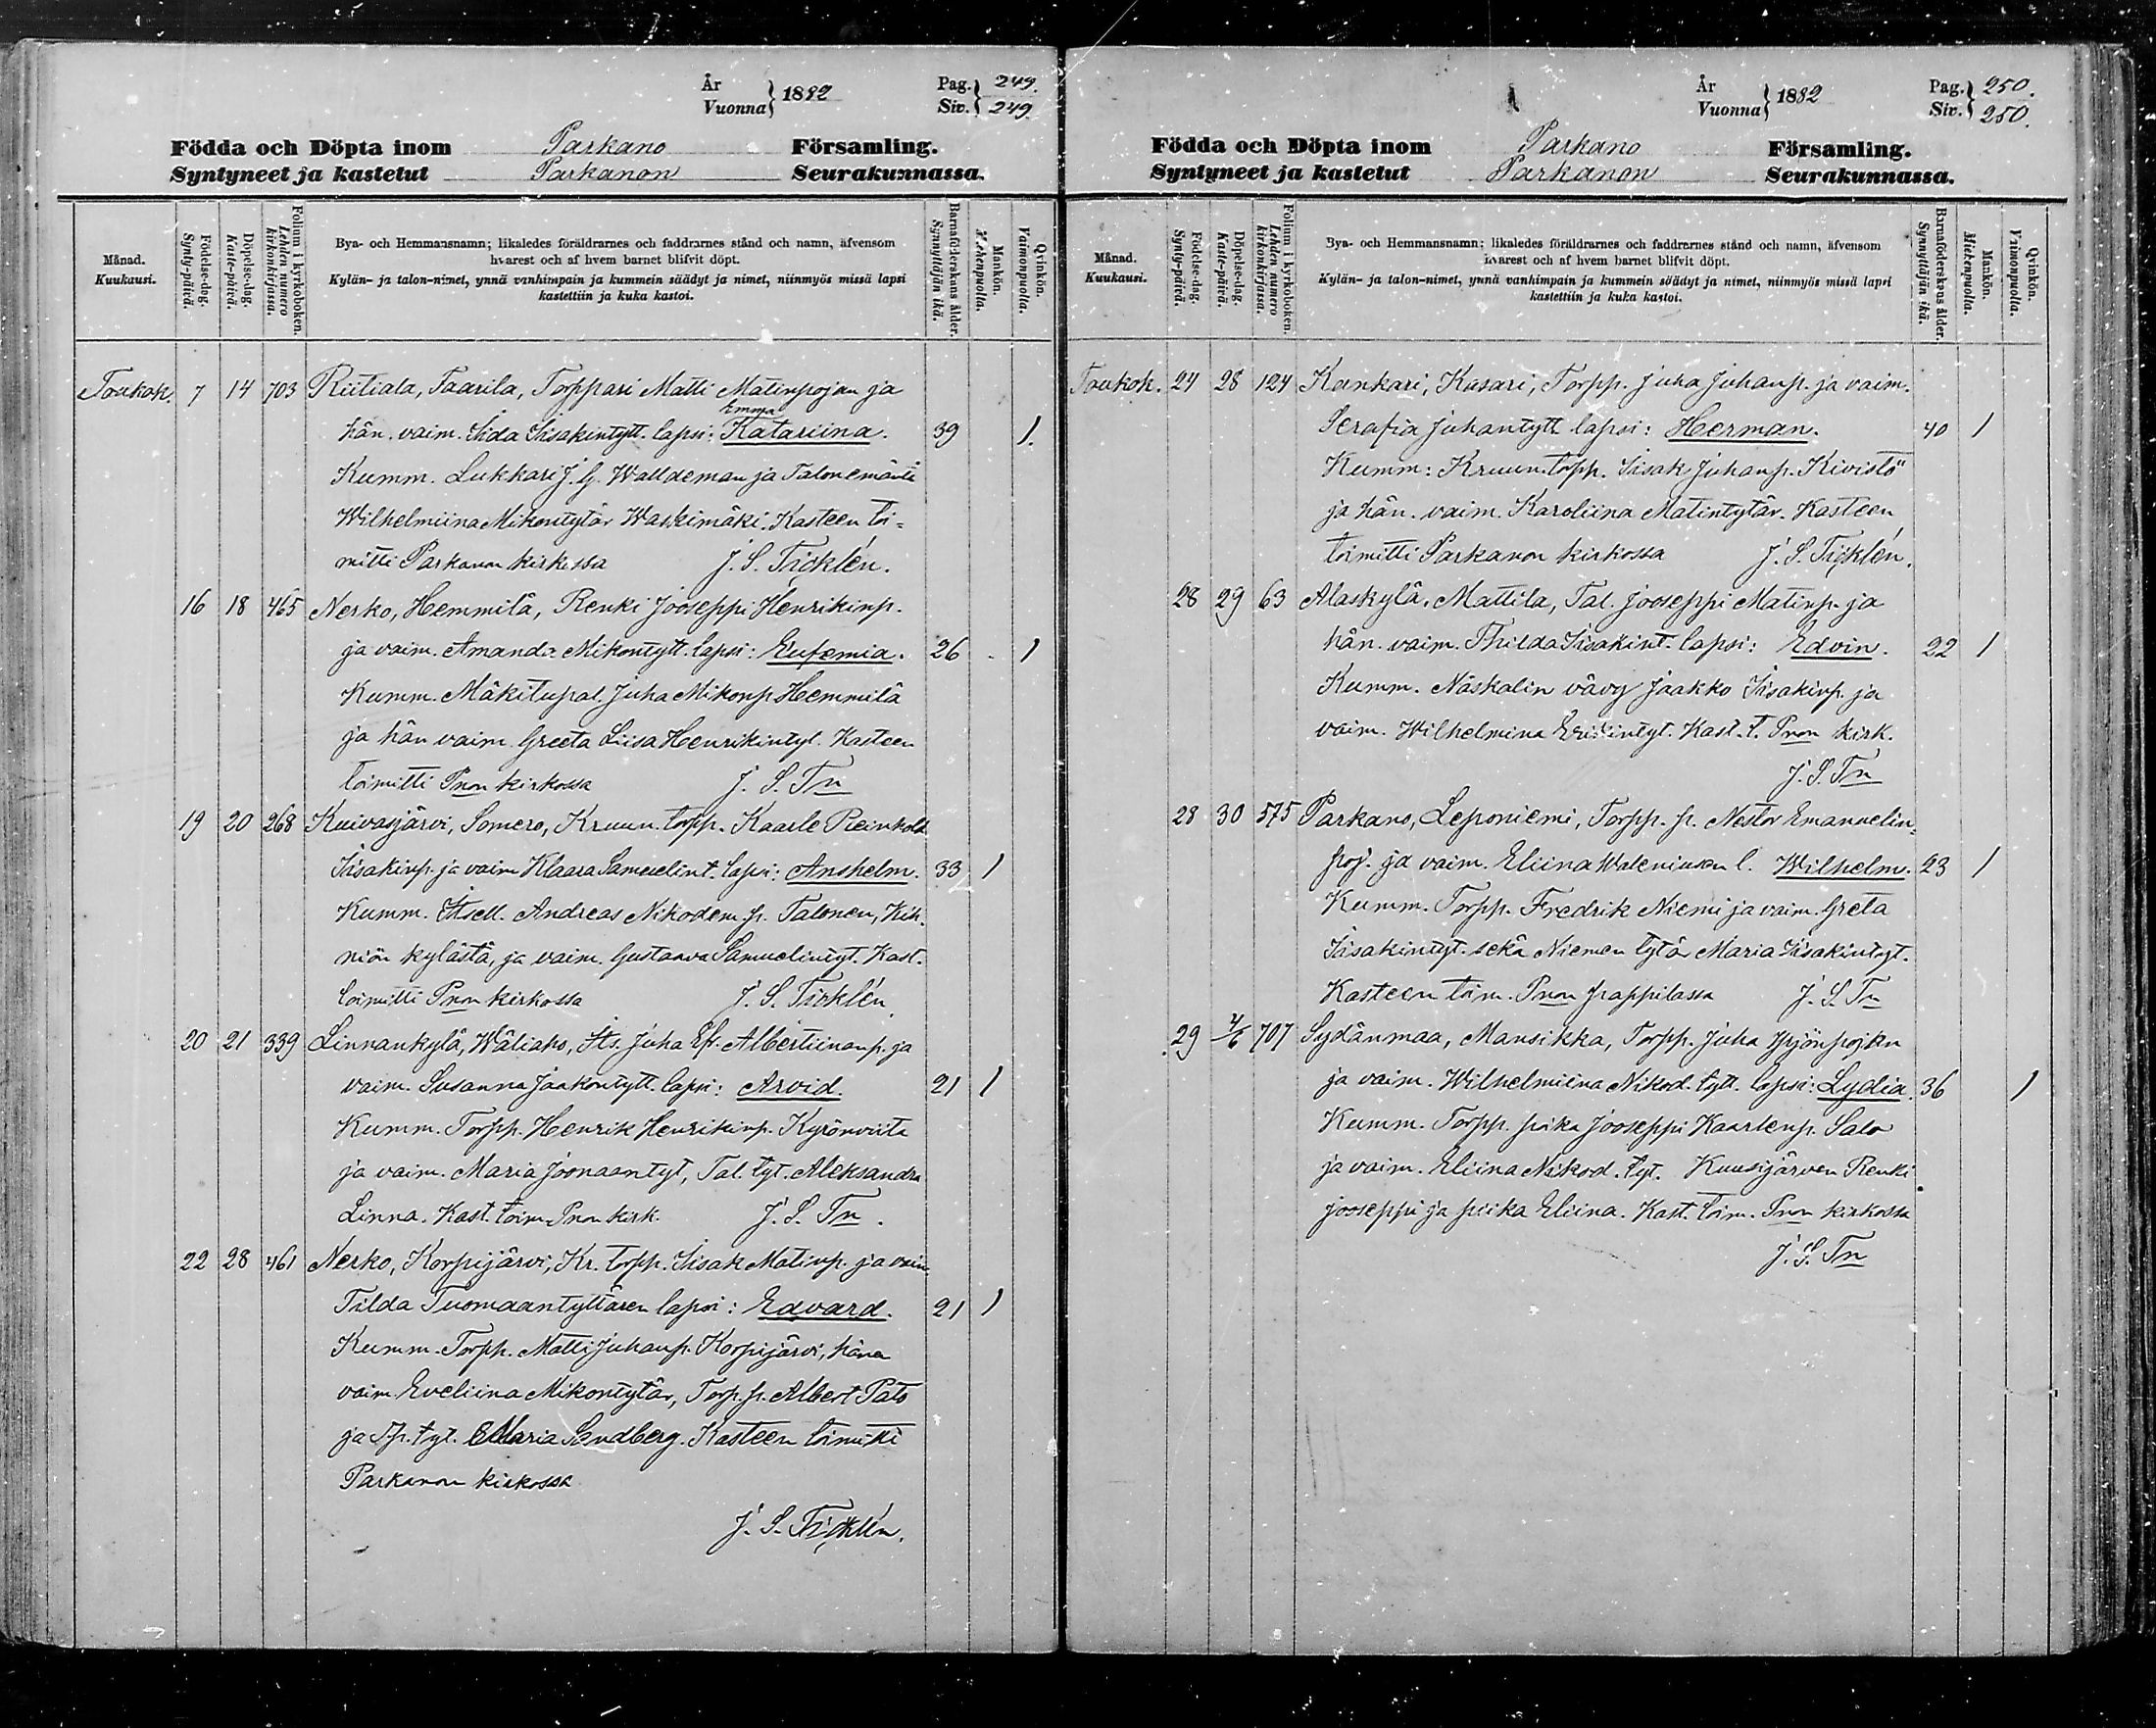 År
Vuonna } 1882
Pag. } 249.
Siv. } 249
Födda och Döpta inom Parkano Församling.
Syntyneet ja kastetut Parkanon Seurakunnassa.
Månad.
Kuukausi.
Födelse-dag.
Synty-päivä.
Döpelse-dag.
Kaste-päivä.
Folium i kyrkoboken.
Lehden numero kirkonkirjassa.
Bya- och Hemmansnamn; likaledes föräldrarnes och faddrarnes stånd och namn, äfvensom
hvarest och af hvem barnet blifvit döpt.
Kylän- ja talon-nimet, ynnä vanhimpain ja kummein säädyt ja nimet, niinmyös missä lapsi
kastettiin ja kuka kastoi.
Barnaföderskans ålder.
Synnyttäjän ikä.
Mankön.
Miehenpuolta.
Qvinkön.
Vaimonpuolta.
Toukok. 7 14 703 Riitiala, Taarila, Torppari Matti Matinpojan ja
Emma
hän. vaim. Iida Iisakintytt. lapsi: Katariina. 39 1.
Kumm. Lukkari J. G. Walldeman ja Talonemäntä
Wilhelmiina Mikontytär Waskimäki. Kasteen toi=
mitti Parkanon kirkossa J. S. Ticklén.
16 18 465 Nerko, Hemmilä, Renki Jooseppi Henrikinp.
ja vaim. Amanda Mikontytt. lapsi: Eufemia. 26 1
Kumm. Mäkitupal. Juha Mikonp. Hemmilä
ja hän vaim. Greeta Liisa Henrikintyt. Kasteen
toimitti Pnon kirkossa J. S. Tn
19 20 268 Kuivasjärvi, Somero, Kruun. torpp. Kaarle Reinhold
Iisakinp. ja vaim Klaara Samuelint. lapsi: Anshelm. 33 1
Kumm. Itsell. Andreas Nikodem. p. Talonen, Kih-
niön kylästä, ja vaim. Gustaava Samuelintyt. Kast.
toimitti Pnon kirkossa J. S. Ticklén
20 21 339 Linnankylä, Wäliaho, Its. Juha Ef. Albertiinanp. ja
vaim. Susanna Jaakontytt. lapsi: Arvid. 21 1
Kumm. Torpp. Henrik Henrikinp. Kyrönviita
ja vaim. Maria Joonaantyt, Tal. tyt. Aleksandra
Linna. Kast. toim. Pnon kirk. J. S. Tn.
22 28 461 Nerko, Korpijärvi, Kr. torpp. Iisak Matinp. ja vaim
Tilda Tuomaantyttären lapsi: Edvard. 21 1
Kumm. Torpp. Matti Juhanp. Korpijärvi, häne
vaim Eveliina Mikontytär, Torp. p. Albert Pato
ja Tp. tyt. Maria Sandberg. Kasteen toimitti
Parkanon kirkossa
J. S. Ticklén.
År
Vuonna } 1882
Pag. } 250.
Siv. } 250.
Födda och Döpta inom Parkano Församling.
Syntyneet ja kastetut Parkanon Seurakunnassa.
Månad.
Kuukausi.
Födelse-dag.
Synty-päivä.
Döpelse-dag.
Kaste-päivä.
Folium i kyrkoboken.
Lehden numero kirkonkirjassa.
Bya- och Hemmansnamn; likaledes föräldrarnes och faddrarnes stånd och namn, äfvensom
hvarest och af hvem barnet blifvit döpt.
Kylän- ja talon-nimet, ynnä vanhimpain ja kummein säädyt ja nimet, niinmyös missä lapsi
kastettiin ja kuka kastoi.
Barnaföderskans ålder.
Synnyttäjän ikä.
Mankön.
Miehenpuolta.
Qvinkön.
Vaimonpuolta.
Toukok. 24 28 124 Kankari, Kasari, Torpp. Juha Juhanp. ja vaim.
Serafia Juhantytt lapsi: Herman. 40 1
Kumm: Kruun. torpp. Iisak Juhanp. Kivistö
ja hän. vaim. Karoliina Matintytär. Kasteen
toimitti Parkanon kirkossa J. S. Ticklén.
28 29 63 Alaskylä, Mattila, Tal. Jooseppi Matinp. ja
hän. vaim. Thilda Iisakint. lapsi: Edvin. 22 1
Kumm. Näskalin vävy Jaakko Iisakinp. ja
vaim. Wilhelmina Erikintyt. Kast. t. Pnon kirk.
J. S. Tn
28 30 575 Parkano, Leponiemi, Torpp. p. Nestor Emanuelin=
poj. ja vaim. Eliina Waleniuksen l. Wilhelm. 23 1
Kumm. Torpp. Fredrik Niemi ja vaim. Greta
Iisakintyt. sekä Niemen tytär Maria Iisakintyt.
Kasteen toim. Pnon pappilassa J. S. Tn
29 4/6 707 Sydänmaa, Mansikka, Torpp. Juha Yrjönpojan
ja vaim. Wilhelmiina Nikod. tytt. lapsi: Lydia. 36 1
Kumm. Torpp. poika Jooseppi Kaarlenp. Salo
ja vaim. Eliina Nikod. tyt. Kuusijärven Renki
Jooseppi ja piika Eliina. Kast. toim. Pnon kirkossa
J. S. Tn